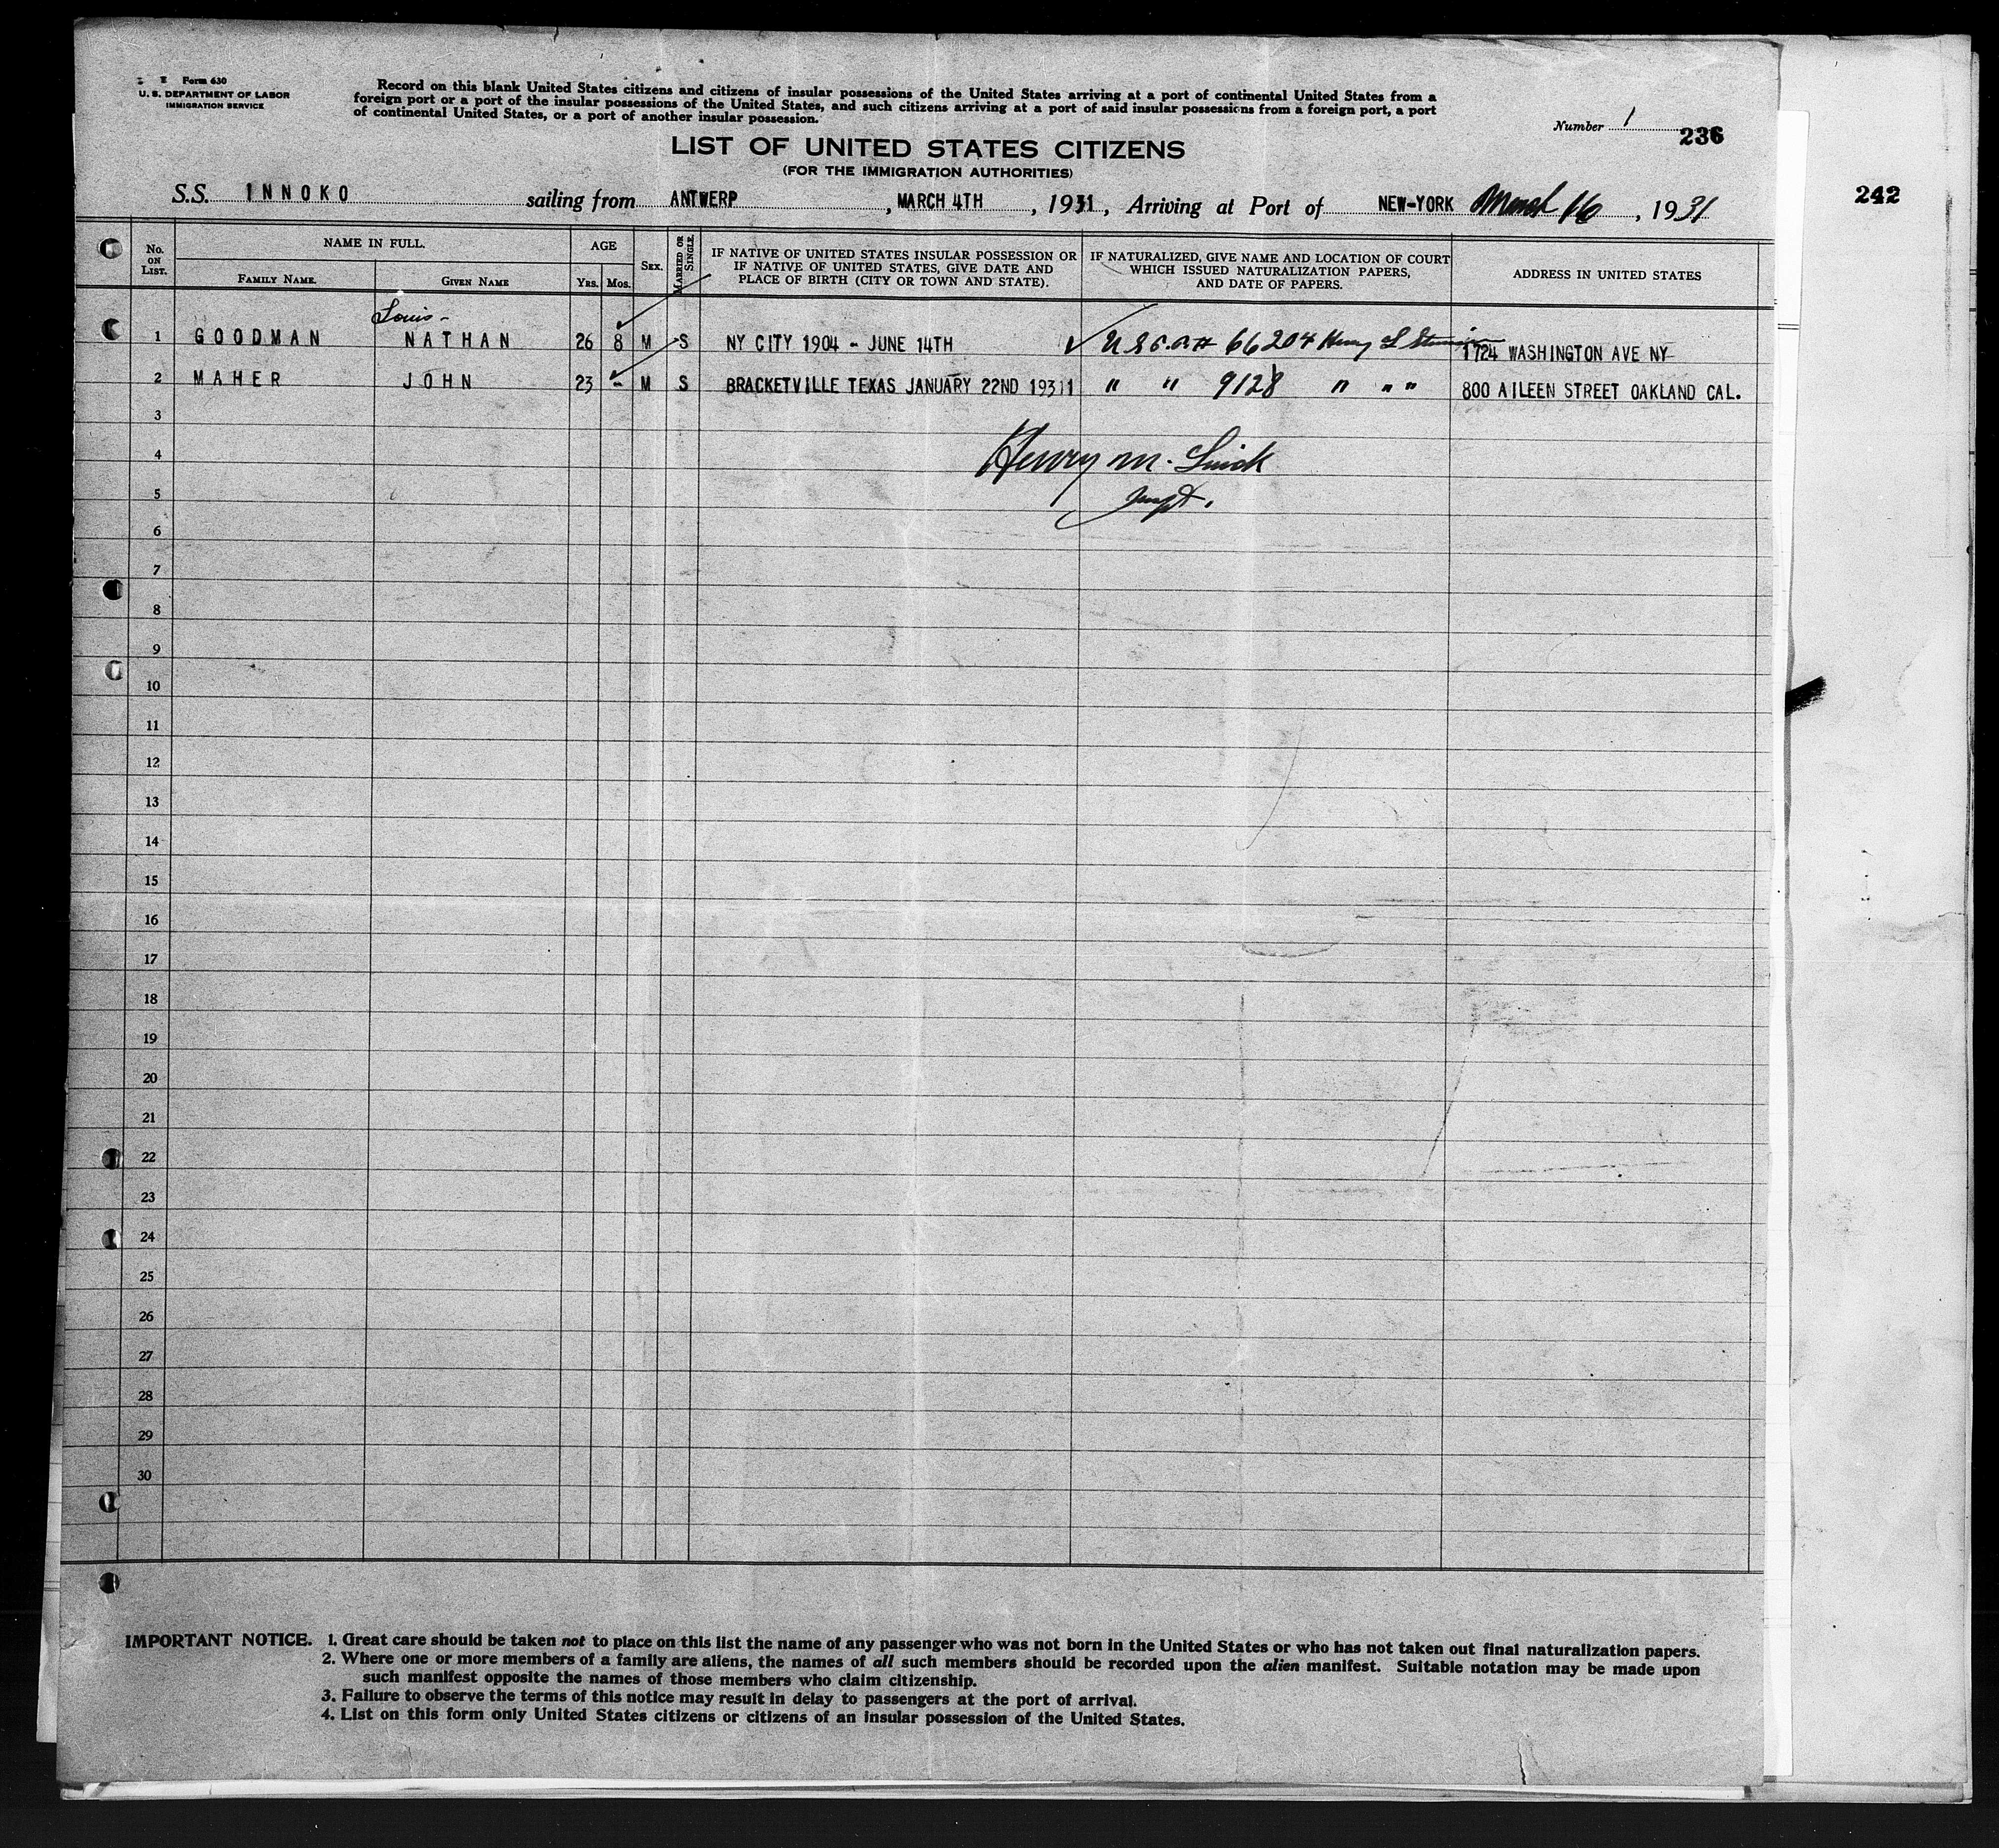 Form 630
U. S. DEPARTMENT OF LABOR
IMMIGRATION SERVICE
Record on this blank United States citizens and citizens of insular possessions of the United States arriving at a port of continental United States from a
foreign port or a port of the insular possessions of the United States, and such citizens arriving at a port of said insular possessions from a foreign port, a port
of continental United States, or a port of another insular possession.
Number 1
236
242
LIST OF UNITED STATES CITIZENS
(FOR THE IMMIGRATION AUTHORITIES)
S.S. INNOKO sailing from ANTWERP, MARCH 4TH, 1931, Arriving at Port of NEW-YORK March 16, 1931
No. ON LIST.
NAME IN FULL.
FAMILY NAME.
GIVEN NAME
AGE
Yrs.
Mos.
SEX.
MARRIED OR SINGLE.
IF NATIVE OF UNITED STATES INSULAR POSSESSION OR
IF NATIVE OF UNITED STATES, GIVE DATE AND
PLACE OF BIRTH (CITY OR TOWN AND STATE).
IF NATURALIZED, GIVE NAME AND LOCATION OF COURT
WHICH ISSUED NATURALIZATION PAPERS,
AND DATE OF PAPERS.
ADDRESS IN UNITED STATES
Louis-
1 GOODMAN NATHAN 26 8 M S NY CITY 1904 - JUNE 14TH 66204 Henry L 1724 WASHINGTON AVE NY
2 MAHER JOHN 23 - M S BRACKETVILLE TEXAS JANUARY 22ND 19311 " " 9128 " " " 800 AILEEN STREET OAKLAND CAL.
3
4
Henry M.
5
6
7
8
9
10
11
12
13
14
15
16
17
18
19
20
21
22
23
24
25
26
27
28
29
30
IMPORTANT NOTICE. 1. Great care should be taken not to place on this list the name of any passenger who was not born in the United States or who has not taken out final naturalization papers.
2. Where one or more members of a family are aliens, the names of all such members should be recorded upon the alien manifest. Suitable notation may be made upon
such manifest opposite the names of those members who claim citizenship.
3. Failure to observe the terms of this notice may result in delay to passengers at the port of arrival.
4. List on this form only United States citizens or citizens of an insular possession of the United States.